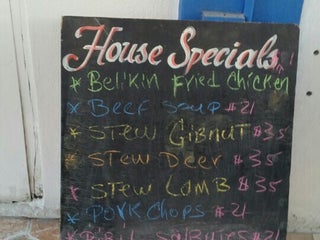 House Specials
* Belikin Fried Chicken
* Beef Soup $21
* Stew Gibnut $35
* Stew Deer $35
* Stew Lamb $35
* Pork Chops $21